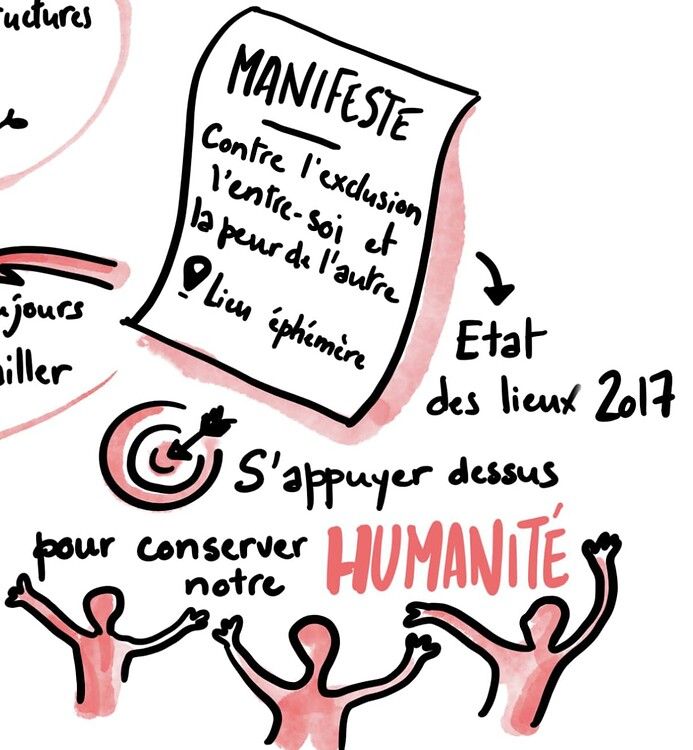 MANIFESTE
Contre l'exclusion
l'entre-soi et
la peur de l'autre
Lieu éphémère
Etat
des lieux 2017
S'appuyer dessus
pour conserver
notre
HUMANITÉ